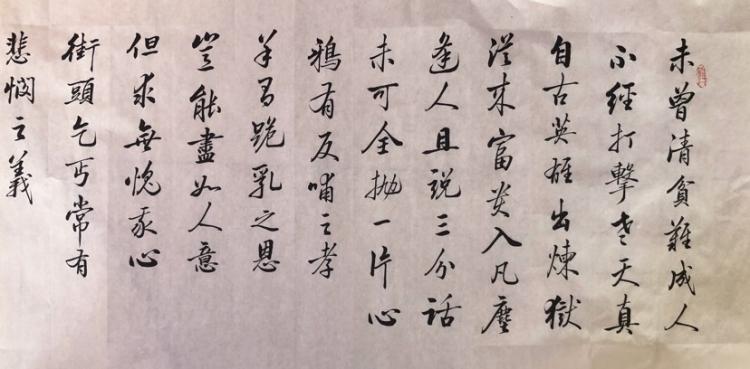 未曾清貧難成人
不經打擊老天真
自古英雄出煉獄
從來富貴入凡塵
逢人且説三分話
未可全拋一片心
鴉有反哺之孝
羊有跪乳之恩
豈能盡如人意
但求無愧我心
街頭乞丐常有
悲憫之義